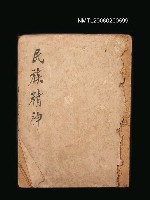 NMTL_20080200699
民族精神